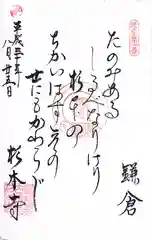 鎌倉
たのみある
しるべなりけり
杉もとの
ちかいはすゑの
世にもかわらじ
杉本寺
平成三十年
八月廿五日